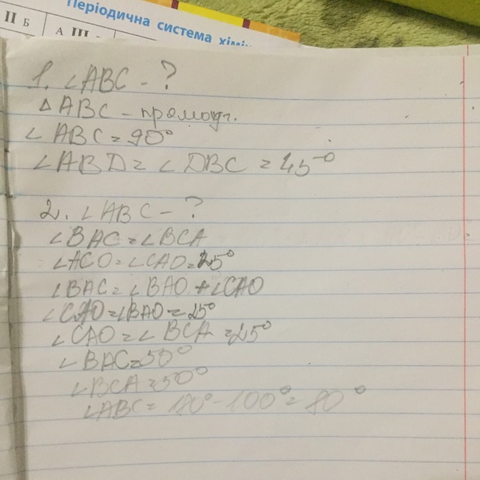 Періодична система хімі
II Б
А III
1. ∠ABC - ?
△ ABC - прямокут.
∠ ABC = 90°
∠ABD = ∠DBC = 45°
2. ∠ABC - ?
∠BAC = ∠BCA
∠ACO = ∠CAO = 25°
∠BAC = ∠BAO + ∠CAO
∠CAO = ∠BAO = 25°
∠CAO = ∠BCA = 25°
∠BAC = 50°
∠BCA = 50°
∠ABC = 180° - 100° = 80°